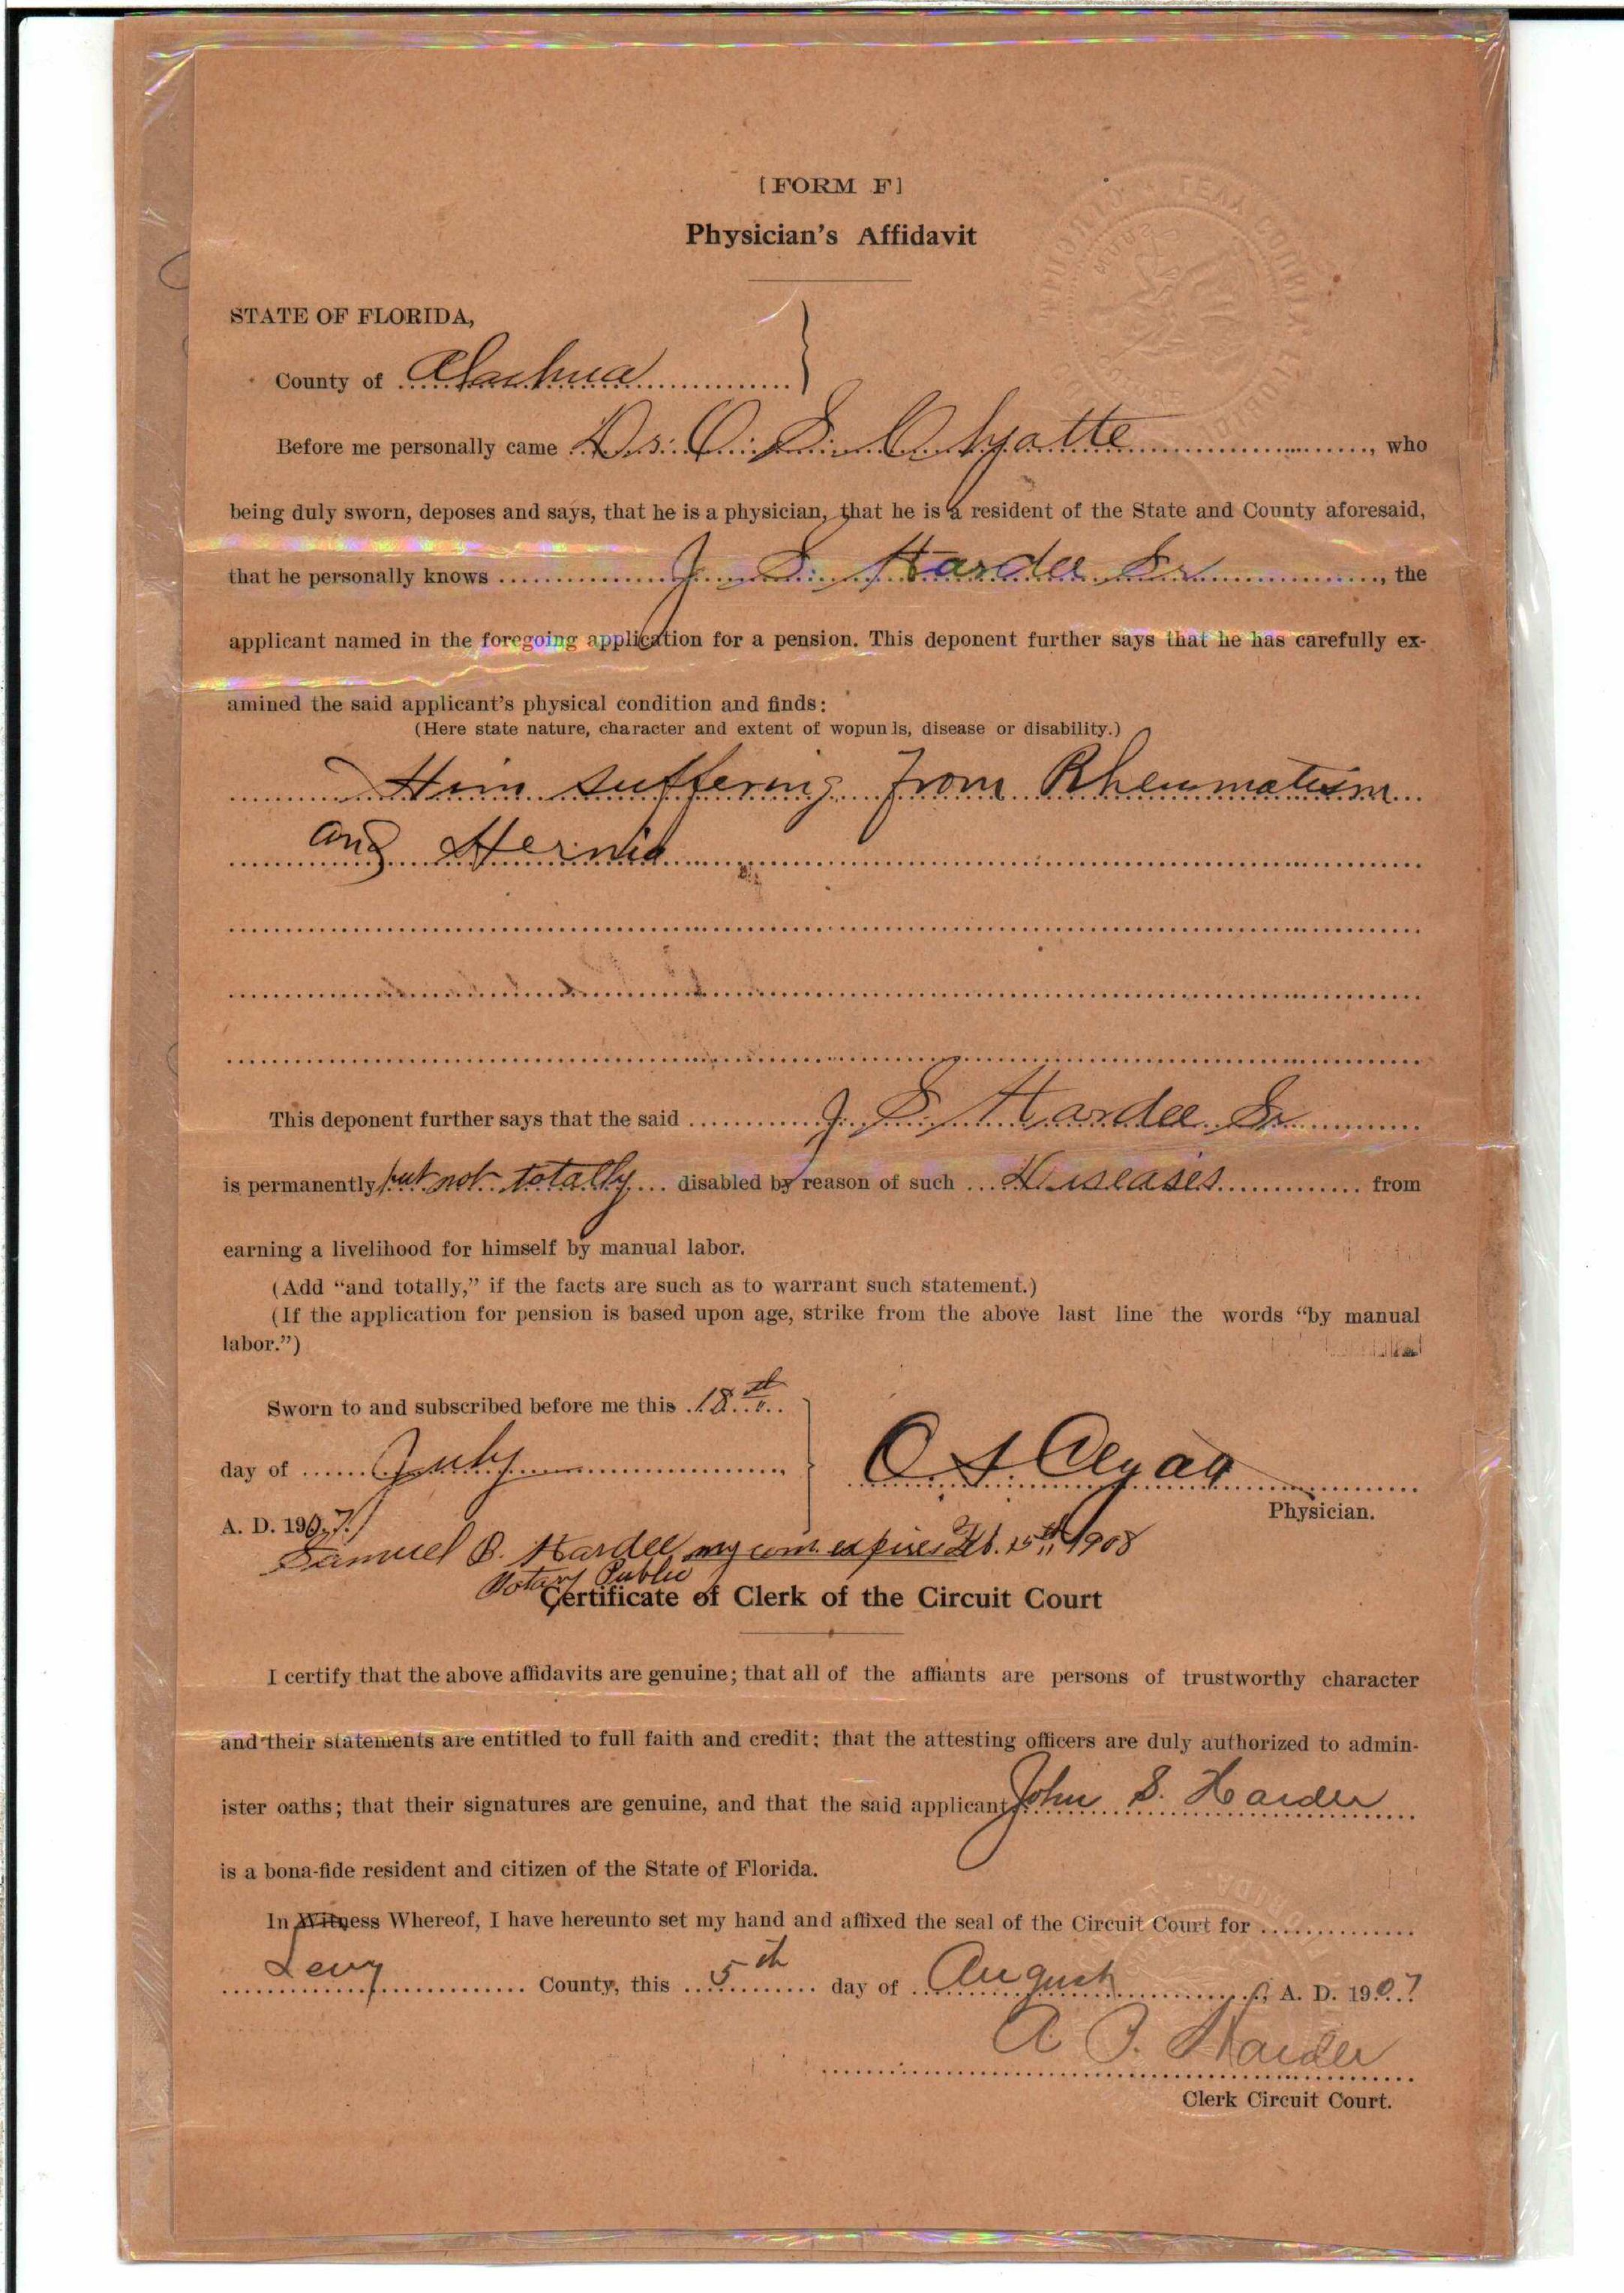 [FORM F]
Physician's Affidavit
STATE OF FLORIDA,
County of Alachua
Before me personally came Dr. O. S. Olyatte, who
being duly sworn, deposes and says, that he is a physician, that he is a resident of the State and County aforesaid,
that he personally knows J. S. Hardee Sr, the
applicant named in the foregoing application for a pension. This deponent further says that he has carefully ex-
amined the said applicant's physical condition and finds:
(Here state nature, character and extent of wopunls, disease or disability.)
Him suffering from Rheumatism
and Hernia
This deponent further says that the said J. S. Hardee Sr
is permanently but not totally disabled by reason of such Diseases from
earning a livelihood for himself by manual labor.
(Add “and totally,” if the facts are such as to warrant such statement.)
(If the application for pension is based upon age, strike from the above last line the words “by manual
labor.”)
Sworn to and subscribed before me this 18th
day of July
O. S.
Physician.
A. D. 1907.
Samuel B. Hardee my com. expires Feb. 15th 1908
Notary Public
Certificate of Clerk of the Circuit Court
I certify that the above affidavits are genuine; that all of the affiants are persons of trustworthy character
and their statements are entitled to full faith and credit; that the attesting officers are duly authorized to admin-
ister oaths; that their signatures are genuine, and that the said applicant John S. Hardee
is a bona-fide resident and citizen of the State of Florida.
In Witness Whereof, I have hereunto set my hand and affixed the seal of the Circuit Court for
Levy County, this 5th day of August, A. D. 1907
A. P. Hardee
Clerk Circuit Court.